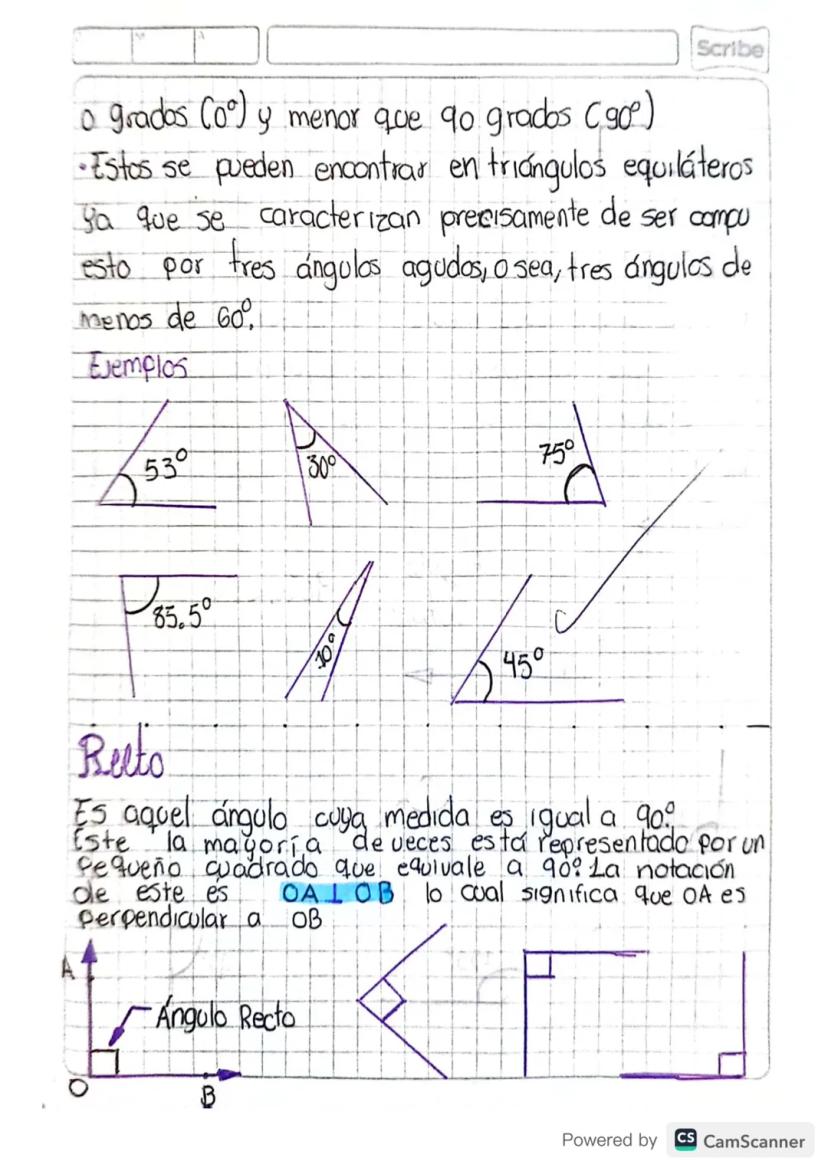 Scribe
0 grados (0°) y menor que 90 grados (90°)
·Estos se pueden encontrar en triángulos equiláteros
ya que se caracterizan precisamente de ser compu
esto por tres ángulos agudos, o sea, tres ángulos de
menos de 60°.
Ejemplos
53°
30°
75°
85.5°
10°
45°
Recto
Es aquel ángulo cuya medida es igual a 90°.
Este la mayoría de veces está representado por un
pequeño cuadrado que equivale a 90°. La notación
de este es OA⊥OB lo cual significa que OA es
perpendicular a OB
A
Ángulo Recto
O
B
Powered by CS CamScanner